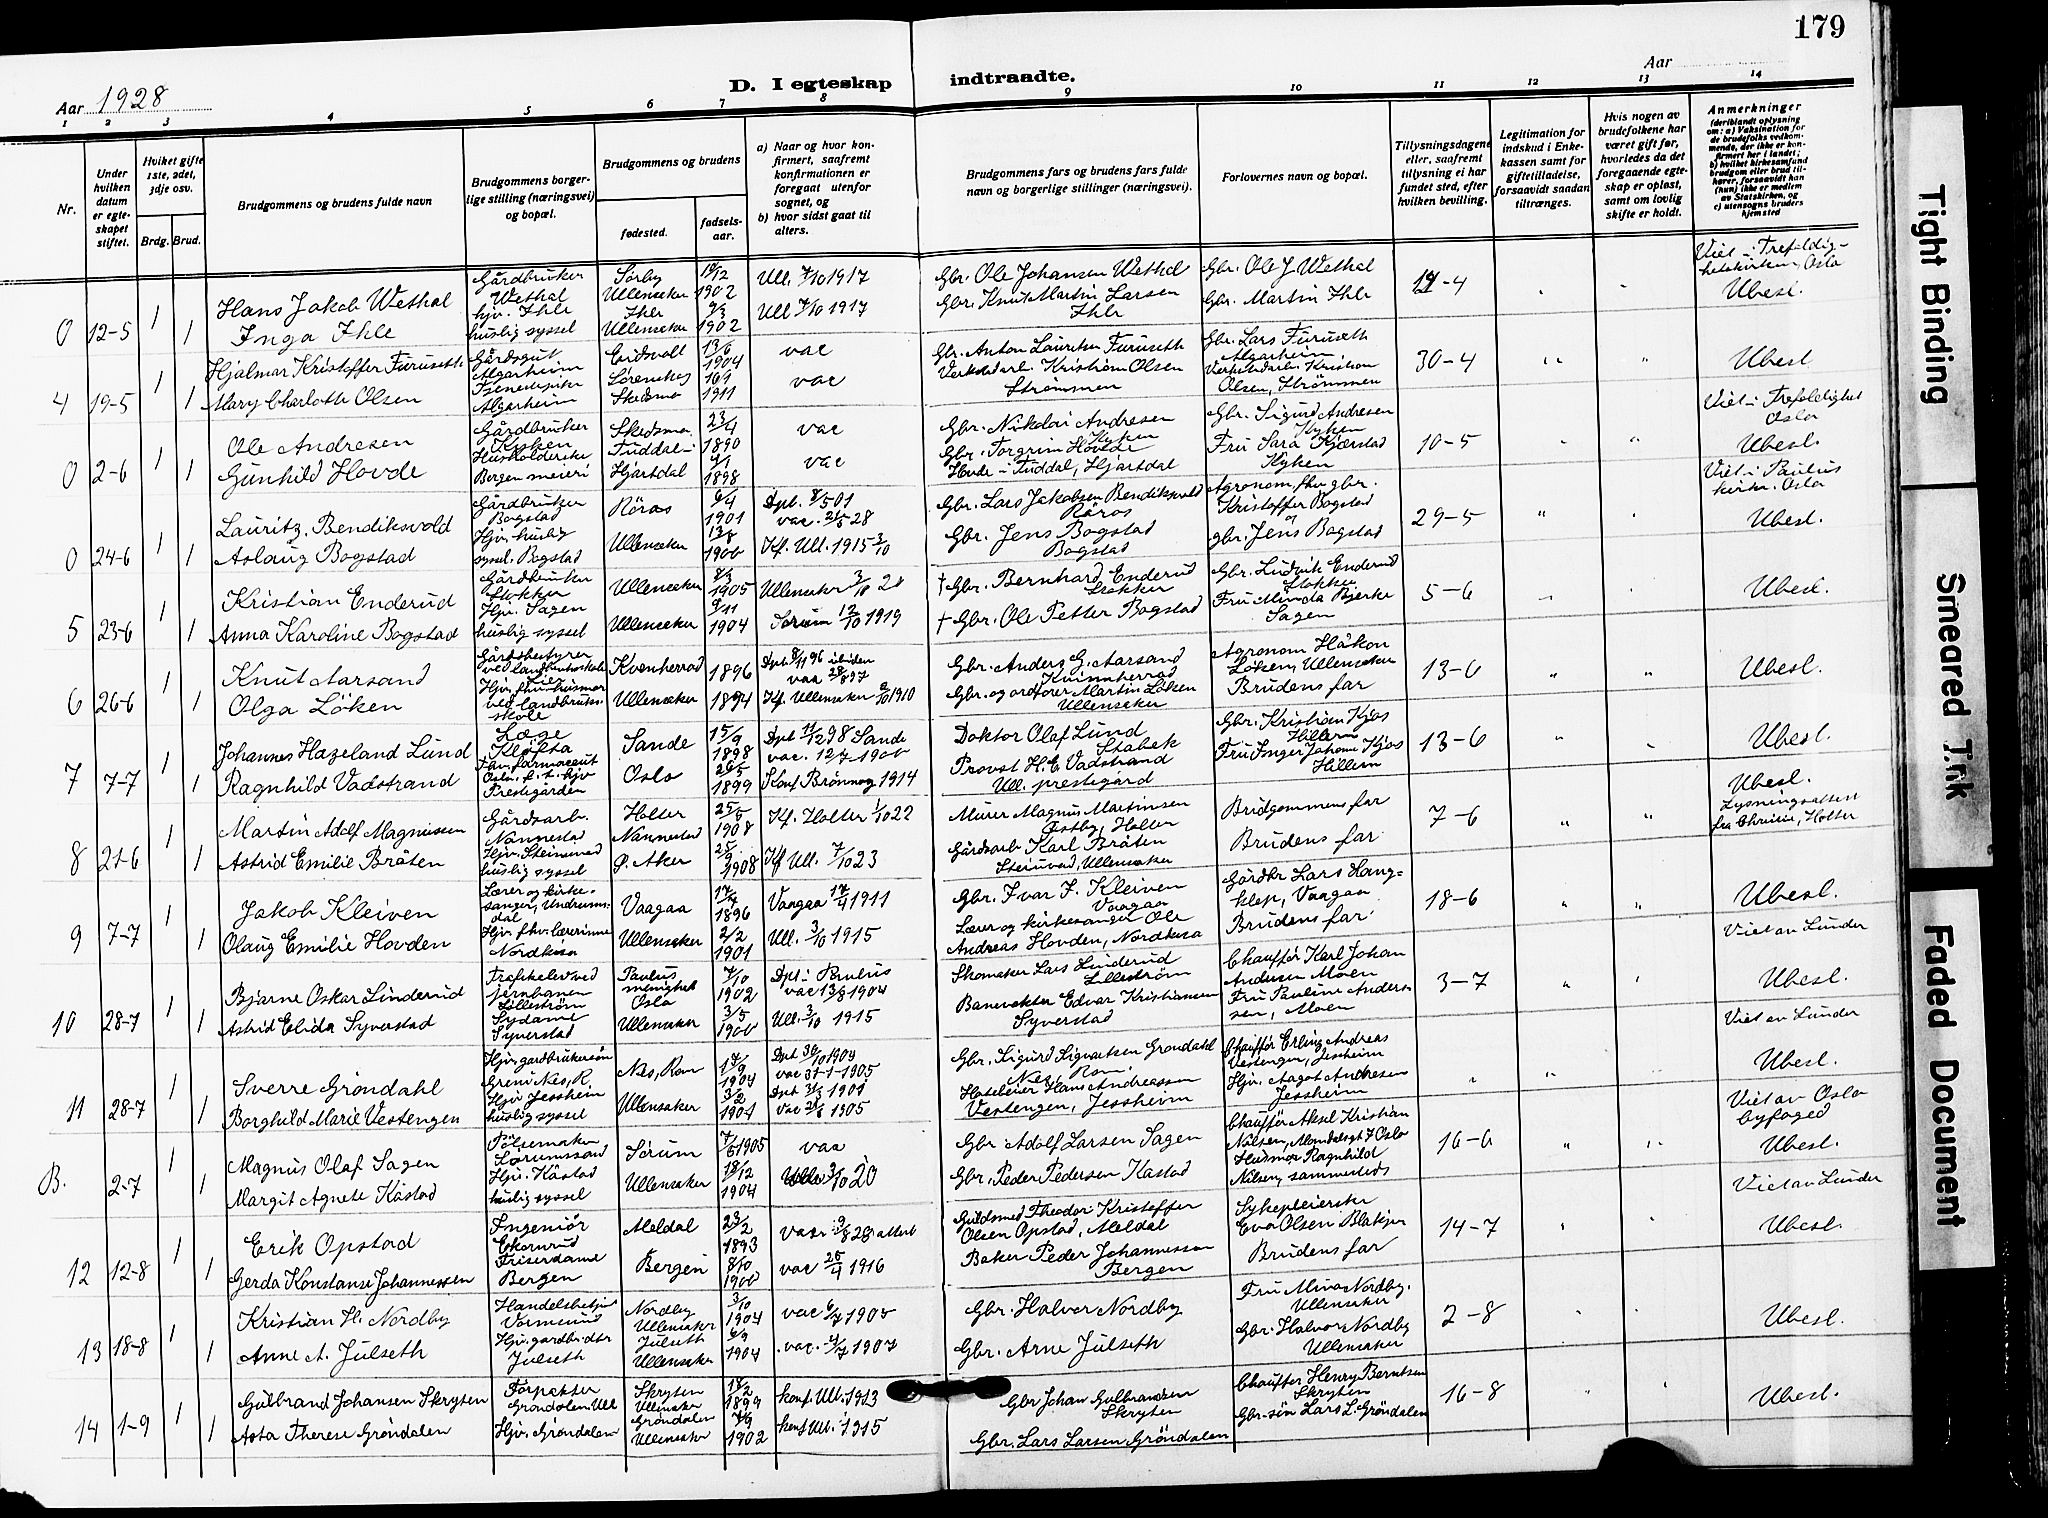 179
Aar 1928
D. I egteskap indtraadte.
Aar
1 2 3 4 5 6 7 8 9 10 11 12 13 14
Nr.
Under hvilken datum er egteskapet stiftet.
Hvilket gifte 1ste, 2det, 3dje osv.
Brdg. Brud.
Brudgommens og brudens fulde navn
Brudgommens borgerlige stilling (næringsvei) og bopæl.
Brudgommens og brudens
fødested.
fødselsaar.
a) Naar og hvor konfirmert, saafremt konfirmationen er foregaat utenfor sognet, og
b) hvor sidst gaat til alters.
Brudgommens fars og brudens fars fulde navn og borgerlige stillinger (næringsvei).
Forlovernes navn og bopæl.
Tillysningsdagene eller, saafremt tillysning ei har fundet sted, efter hvilken bevilling.
Legitimation for indskud i Enkekassen samt for giftetilladelse, forsaavidt saadan tiltrænges.
Hvis nogen av brudefolkene har været gift før, hvorledes da det foregaaende egteskap er opløst, samt om lovlig skifte er holdt.
Anmerkninger
(deriblandt oplysning om: a) Vaksination for de brudefolks vedkommende, der ikke er konfirmert her i landet; b) hvilket kirkesamfund brudgom eller brud tilhører, forsaavidt han (hun) ikke er medlem av Statskirken, og c) utensogns bruders hjemsted
0 12-5 1 Hans Jakob Wethal Gårdbruker Wethal Sørby Ullensaker 19/12 1902 Ull. 7/10 1917 Gbr. Ole Johansen Wethal Gbr. Ole J Wethal 14-4 Viet i Trefoldighetskirken, Oslo
1 Inga Ihle hjv. Ihle huslig syssel Ihle Ullensaker 9/3 1902 Ull 7/10 1917 Gbr. Knut Martin Larsen Ihle Gbr. Martin Ihle Ubesl.
4 19-5 1 Hjalmar Kristoffer Furuseth Gårdsgut Algarheim Eidsvoll 13/6 1904 vac Gbr. Anton Lauritsen Furuseth Gbr. Lars Furuseth Algarheim 30-4 Ubesl
1 Mary Charlotte Olsen Tjenestepike Algarheim Skedsmo 1911 vac Verkstedarb. Kristian Olsen Strømmen Verkstedarb. Kristian Olsen, Strømmen
0 2-6 1 Ole Andresen Gårdbruker Kyken Skedsmo 23/4 1890 vac Gbr. Nikolai Andresen Kyken Gbr. Sigurd Andresen Kyken 10-5 Viet i Trefoldighet Oslo
1 Gunhild Hovde Husholderske Bergen meieri Tuddal i Hjartdal 4/1 1898 vac Gbr. Torgrim Hovde Hovde i Tuddal, Hjartdal Fru Sara Kjærstad Kyken Ubesl.
0 24-6 1 Lauritz Bendiksvold Gårdbruker Bogstad Röros 6/4 1901 Døpt. 8/5 01 Gbr. Lars Jakobsen Bendiksvold Röros Agronom, fhv gbr. Kristoffer Bogstad 29-5 Viet i Paulus kirke, Oslo
1 Aslaug Bogstad Hjv. huslig syssel. Bogstad Ullensaker 13/8 1900 Kf. Ull. 1915 3/10 Gbr. Jens Bogstad Bogstad gbr. Jens Bogstad Ubesl.
5 23-6 1 Kristian Enderud Gårdbruker Stokker Ullensaker 1905 Ullensaker † Gbr. Bernhard Enderud Stokker Gbr. Ludvik Enderud Stokker 5-6 Ubesl.
1 Anna Karoline Bogstad Hjv. Sagen huslig syssel Ullensaker 9/11 1904 Sørum 12/10 1919 † Gbr. Ole Petter Bogstad Fru Minda Bjerke Sagen
6 26-6 1 Knut Aarsand Gårdsbestyrer ved landbruksskole Kvinnherrad 1896 Døpt 8/11 96 ibiden vac 28/8 97 Gbr. Anders G. Aarsand Kvinnherrad Agronom Håkon Løken, Ullensaker 13-6 Ubesl.
1 Olga Löken Hjv. fhv. husmor ved landbruksskole Ullensaker 1894 Kf. Ullensaker 1910 Gbr. og ordfører Martin Løken Ullensaker Brudens far
7 7-7 1 Johannes Hazeland Lund Læge Kløfta Sande 15/9 1898 Døpt 11/12 98 Sande vac. 12/7 1900 Doktor Olaf Lund Stabæk Gbr. Kristian Kjos Hillern 13-6 Ubesl.
1 Ragnhild Vadstrand farmaceut Oslo, f. t. hjv Prestegården Oslo 26/5 1899 Konf Brønnøy 1914 Provst H. E. Vadstrand Ull. prestegård Fru Inger Johanne Kjos Hillern
8 21-6 1 Martin Adolf Magnussen Gårdsarb. Nannestad Holter Nannestad 25/5 1908 Kf. Holter 1/10 22 Murer Magnus Martinsen Østby, Holter Brudgommens far 7-6 Ubesl. Lysningsattest fra Christie, Holter
1 Astrid Emilie Bråten Hjv. Steinsvad huslig syssel Ø. Aker 25/9 1908 Kf Ull. 7/10 23 Gårdsarb Karl Bråten Steinsvad, Ullensaker Brudens far
9 7-7 1 Jakob Kleiven Lærer og kirkesanger, Undrumsdal Vaagaa 17/4 1896 Vaagaa 17/4 1911 Gbr. Ivar I. Kleiven Vaagaa Gårdbr Lars Haugklep, Vaagaa 18-6 Ubesl.
1 Olaug Emilie Hovden Hjv. fhv. lærerinne Nordkisa Ullensaker 2/2 1901 Ull. 3/10 1915 Lærer og kirkesanger Ole Andreas Hovden, Nordkisa Brudens far Viet av Lunder
10 28-7 1 Bjarne Oskar Linderud jernbanen Lilleström Paulus menighet Oslo 7/10 1902 Døpt i Paulus vac 13/8 1904 Skomaker Lars Linderud Lilleström Chauffør Karl Johan Andersen Moen 3-7 Ubesl.
1 Astrid Elvida Syverstad Sydame Syverstad Ullensaker 3/5 1900 Ull. 3/10 1915 Banevokter Edvar Kristiansen Syverstad Fru Pauline Andersen, Moen Viet av Lunder
11 28-7 1 Sverre Gröndahl Hjv. gardbrukersön Greni Nes, R. Nes, Rom 17/9 1904 Døpt 30/10 1904 vac 31-1-1905 Gbr. Sigurd Sigvartsen Grøndahl Nes, Rom. Chauffør Erling Andreas Vestengen, Jessheim Ubesl.
1 Borghild Marie Vestengen Hjv Jessheim huslig syssel Ullensaker 3/2 1901 Døpt 31/3 1901 vac 1905 Hoteleier Hans Andreassen Vestengen, Jessheim Hjv. Aagot Andresen Jessheim Viet av Oslo byfoged
B. 2-7 1 Magnus Olaf Sagen Pölsemaker Sörumsand Sörum 7/6 1905 vac Gbr Adolf Larsen Sagen Chauffør Aksel Kristian Nilsen, Mandalsgt 7 Oslo 16-6 Ubesl.
1 Margit Agnete Kåstad Hjv. Kåstad huslig syssel Ullensaker 18/12 1904 3/10 20 Gbr. Peder Pedersen Kåstad Husmor Ragnhild Nilsen, sammesteds Viet av Lunder
12 12-8 1 Erik Opstad Ingeniör Ekornrud Meldal 23/2 1893 Guldsmed Theodor Kristoffer Olsen Opstad, Meldal Sykepleierske Eva Olsen Blakjer 14-7 Ubesl.
1 Gerda Konstanse Johannessen Friserdame Bergen Bergen 8/10 1900 vac 25/4 1916 Baker Peder Johannesson Bergen Brudens far
13 18-8 1 Kristian H. Nordby Handelsbetjent Vormsund Nordby Ullensaker 3/10 1904 vac 6/7 1905 Gbr. Halvor Nordby Fru Mina Nordby. Ullensaker 2-8 Ubesl.
1 Anne A. Julseth Hjv. gardbr. dtr Julseth Julseth Ullensaker 1904 vac. 1907 Gbr. Arne Julseth Gbr. Halvor Nordby Ullensaker
14 1-9 1 Gulbrand Johansen Skryten Forpakter Grøndalen Ull Skryten Ullensaker 18/2 1899 konf. Ull. 1913 Gbr Johan Gulbrandsen Skryten Chauffør Henry Berntsen Skryten 16-8 Ubesl.
1 Asta Therese Gröndalen Hjv. Gröndalen Gröndalen Ullensaker 1902 konf Ull. 1915 Gbr. Lars Larsen Gröndalen Gbr. sön Lars L. Gröndalen
Tight Binding
Smeared Ink
Faded Document